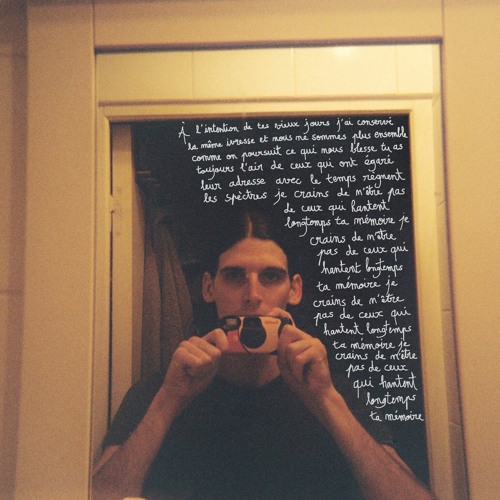 À l'intention de tes vieux jours j'ai conservé
la même ivresse et nous ne sommes plus ensemble
comme on poursuit ce qui nous blesse tu as
toujours l'air de ceux qui ont égaré
leur adresse avec le temps règnent
les spectres je crains de n'être pas
de ceux qui hantent
longtemps ta mémoire je
crains de n'être
pas de ceux qui
hantent longtemps
ta mémoire je
crains de n'être
pas de ceux qui
hantent longtemps
ta mémoire je
crains de n'être
pas de ceux
qui hantent
longtemps
ta mémoire